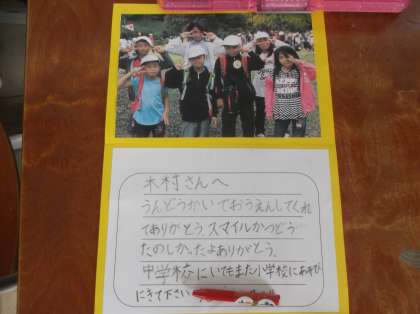 木村さんへ
うんどうかいでおうえんしてくれ
てありがとう。スマイルかつどう
たのしかったよありがとう。
中学校にいてもまた小学校にあそび
にきて下さい